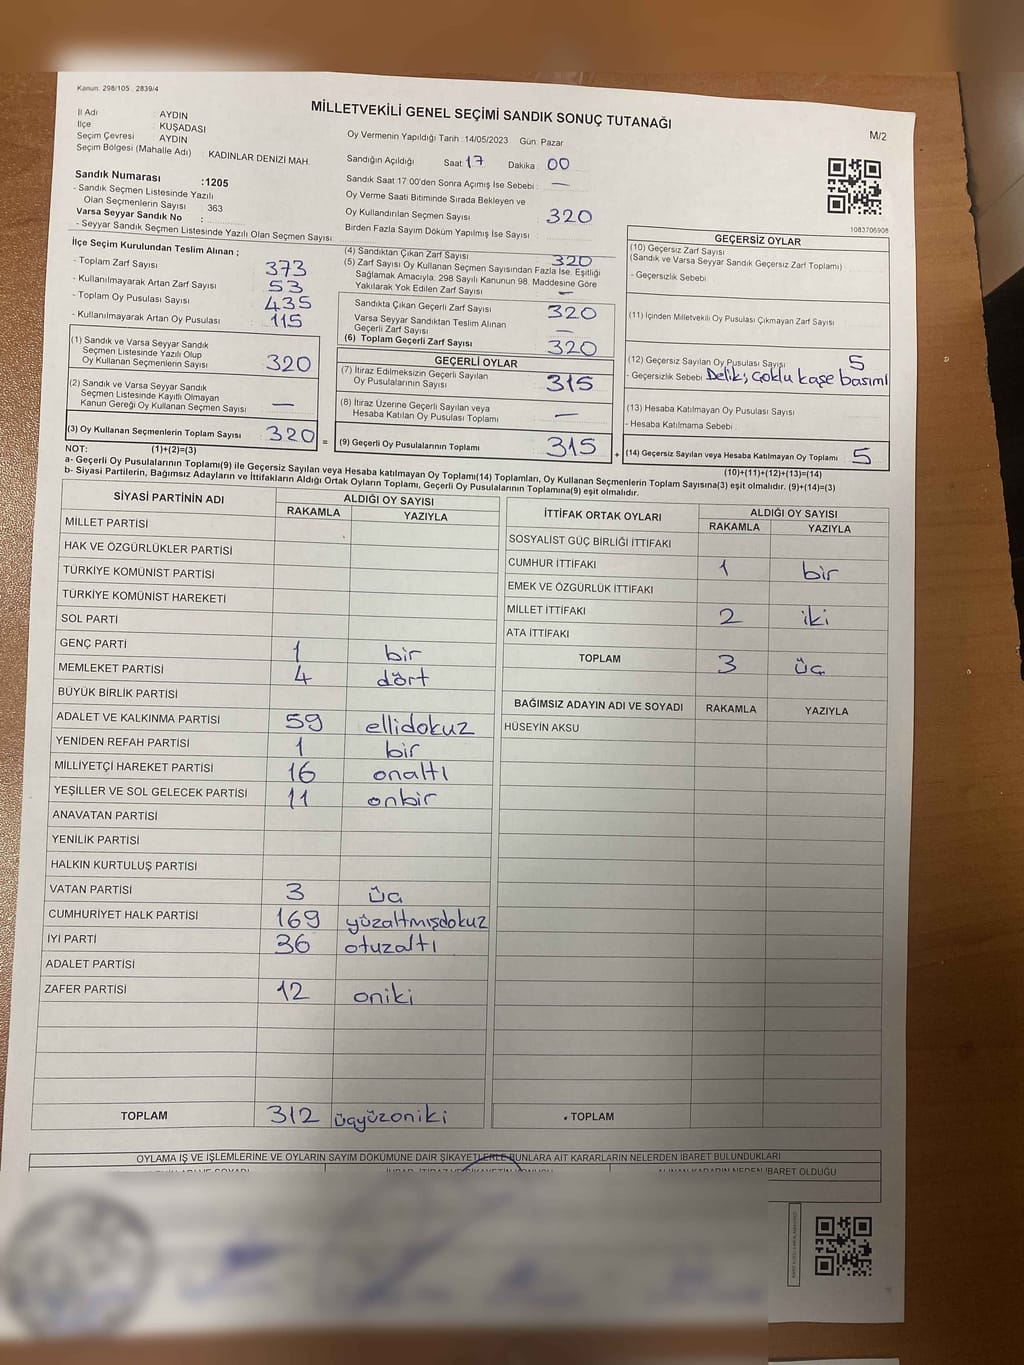 Kanun. 298/105 2839/4
MİLLETVEKİLİ GENEL SEÇİMİ SANDIK SONUÇ TUTANAĞI
M/2
İl Adı : AYDIN
İlçe : KUŞADASI
Seçim Çevresi : AYDIN
Seçim Bölgesi (Mahalle Adı) : KADINLAR DENİZİ MAH.
Oy Vermenin Yapıldığı Tarih :14/05/2023 Gün: Pazar
Sandığın Açıldığı Saat: 17 Dakika : 00
Sandık Saat 17:00'den Sonra Açımış İse Sebebi : —
Oy Verme Saati Bitiminde Sırada Bekleyen ve
Oy Kullandırılan Seçmen Sayısı : 320
Birden Fazla Sayım Döküm Yapılmış İse Sayısı :
Sandık Numarası :1205
- Sandık Seçmen Listesinde Yazılı
Olan Seçmenlerin Sayısı : 363
Varsa Seyyar Sandık No :
- Seyyar Sandık Seçmen Listesinde Yazılı Olan Seçmen Sayısı:
1083706908
İlçe Seçim Kurulundan Teslim Alınan ;
- Toplam Zarf Sayısı : 373
- Kullanılmayarak Artan Zarf Sayısı : 53
- Toplam Oy Pusulası Sayısı : 435
- Kullanılmayarak Artan Oy Pusulası : 115
(1) Sandık ve Varsa Seyyar Sandık
Seçmen Listesinde Yazılı Olup
Oy Kullanan Seçmenlerin Sayısı : 320
(2) Sandık ve Varsa Seyyar Sandık
Seçmen Listesinde Kayıtlı Olmayan
Kanun Gereği Oy Kullanan Seçmen Sayısı : —
(3) Oy Kullanan Seçmenlerin Toplam Sayısı : 320 =
(4) Sandıktan Çıkan Zarf Sayısı : 320
(5) Zarf Sayısı Oy Kullanan Seçmen Sayısından Fazla İse. Eşitliği
Sağlamak Amacıyla: 298 Sayılı Kanunun 98. Maddesine Göre
Yakılarak Yok Edilen Zarf Sayısı : —
Sandıkta Çıkan Geçerli Zarf Sayısı : 320
Varsa Seyyar Sandıktan Teslim Alınan
Geçerli Zarf Sayısı : —
(6) Toplam Geçerli Zarf Sayısı : 320
GEÇERLİ OYLAR
(7) İtiraz Edilmeksizin Geçerli Sayılan
Oy Pusulalarının Sayısı : 315
(8) İtiraz Üzerine Geçerli Sayılan veya
Hesaba Katılan Oy Pusulası Toplamı : —
(9) Geçerli Oy Pusulalarının Toplamı : 315 +
GEÇERSİZ OYLAR
(10) Geçersiz Zarf Sayısı
(Sandık ve Varsa Seyyar Sandık Geçersiz Zarf Toplamı) :
- Geçersizlik Sebebi :
(11) İçinden Milletvekili Oy Pusulası Çıkmayan Zarf Sayısı :
(12) Geçersiz Sayılan Oy Pusulası Sayısı : 5
- Geçersizlik Sebebi : Delik, çoklu kaşe basımı
(13) Hesaba Katılmayan Oy Pusulası Sayısı :
- Hesaba Katılmama Sebebi :
(14) Geçersiz Sayılan veya Hesaba Katılmayan Oy Toplamı : 5
NOT: (1)+(2)=(3) (10)+(11)+(12)+(13)=(14)
a- Geçerli Oy Pusulalarının Toplamı(9) ile Geçersiz Sayılan veya Hesaba katılmayan Oy Toplamı(14) Toplamları, Oy Kullanan Seçmenlerin Toplam Sayısına(3) eşit olmalıdır. (9)+(14)=(3)
b- Siyasi Partilerin, Bağımsız Adayların ve İttifakların Aldığı Ortak Oyların Toplamı, Geçerli Oy Pusulalarının Toplamına(9) eşit olmalıdır.
SİYASİ PARTİNİN ADI ALDIĞI OY SAYISI
RAKAMLA YAZIYLA
MİLLET PARTİSİ
HAK VE ÖZGÜRLÜKLER PARTİSİ
TÜRKİYE KOMÜNİST PARTİSİ
TÜRKİYE KOMÜNİST HAREKETİ
SOL PARTİ
GENÇ PARTİ 1 bir
MEMLEKET PARTİSİ 4 dört
BÜYÜK BİRLİK PARTİSİ
ADALET VE KALKINMA PARTİSİ 59 ellidokuz
YENİDEN REFAH PARTİSİ 1 bir
MİLLİYETÇİ HAREKET PARTİSİ 16 onaltı
YEŞİLLER VE SOL GELECEK PARTİSİ 11 onbir
ANAVATAN PARTİSİ
YENİLİK PARTİSİ
HALKIN KURTULUŞ PARTİSİ
VATAN PARTİSİ 3 üç
CUMHURİYET HALK PARTİSİ 169 yüzaltmışdokuz
İYİ PARTİ 36 otuzaltı
ADALET PARTİSİ
ZAFER PARTİSİ 12 oniki
TOPLAM 312 üçyüzoniki
İTTİFAK ORTAK OYLARI ALDIĞI OY SAYISI
RAKAMLA YAZIYLA
SOSYALİST GÜÇ BİRLİĞİ İTTİFAKI
CUMHUR İTTİFAKI 1 bir
EMEK VE ÖZGÜRLÜK İTTİFAKI
MİLLET İTTİFAKI 2 iki
ATA İTTİFAKI
TOPLAM 3 üç
BAĞIMSIZ ADAYIN ADI VE SOYADI RAKAMLA YAZIYLA
HÜSEYİN AKSU
TOPLAM
OYLAMA İŞ VE İŞLEMLERİNE VE OYLARIN SAYIM DÖKÜMÜNE DAİR ŞİKAYETLERLE BUNLARA AİT KARARLARIN NELERDEN İBARET BULUNDUKLARI
ALINAN KARARIN NEDEN İBARET OLDUĞU